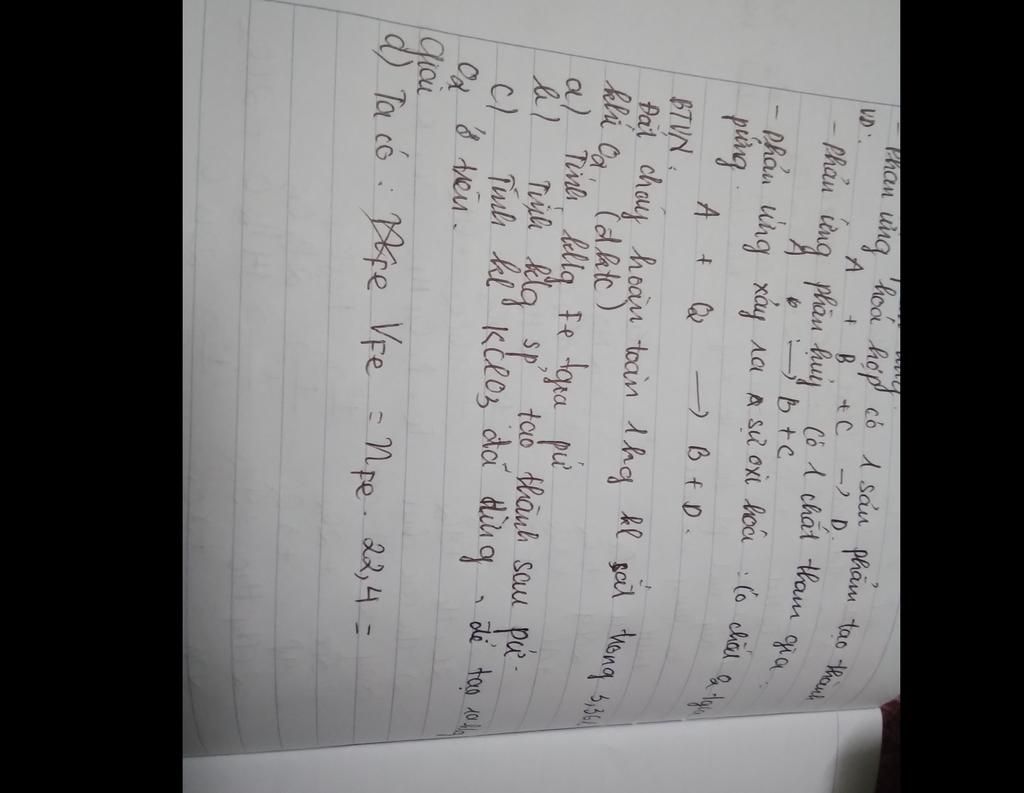 - Phản ứng hoá hợp có 1 sản phẩm tạo thành
VD: A + B + C → D.
- Phản ứng phân huỷ có 1 chất tham gia:
A → B + C
- Phản ứng xảy ra sự oxi hoá: Có chất O2 tgia
pứng.
A + O2 → B + D.
BTVN:
Đốt cháy hoàn toàn 1 lượng kl sắt trong 3,36l
khí O2 (đktc)
a) Tính klg Fe tgia pứ
b) Tính klg sp tạo thành sau pứ.
c) Tính kl KClO3 đã dùng để tạo
O2 ở trên.
Giải
d) Ta có: VFe = nFe . 22,4 =